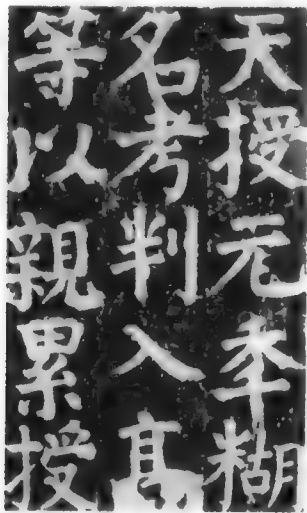 天授元年糊
名考判入高
等以親累授